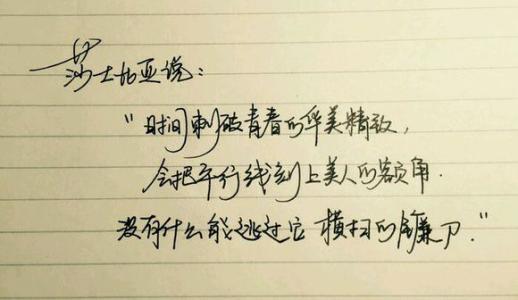 莎士比亚说:
"时间刺破青春的华美精致,
会把平行线刻上美人的额角.
没有什么能逃过它横扫的镰刀."